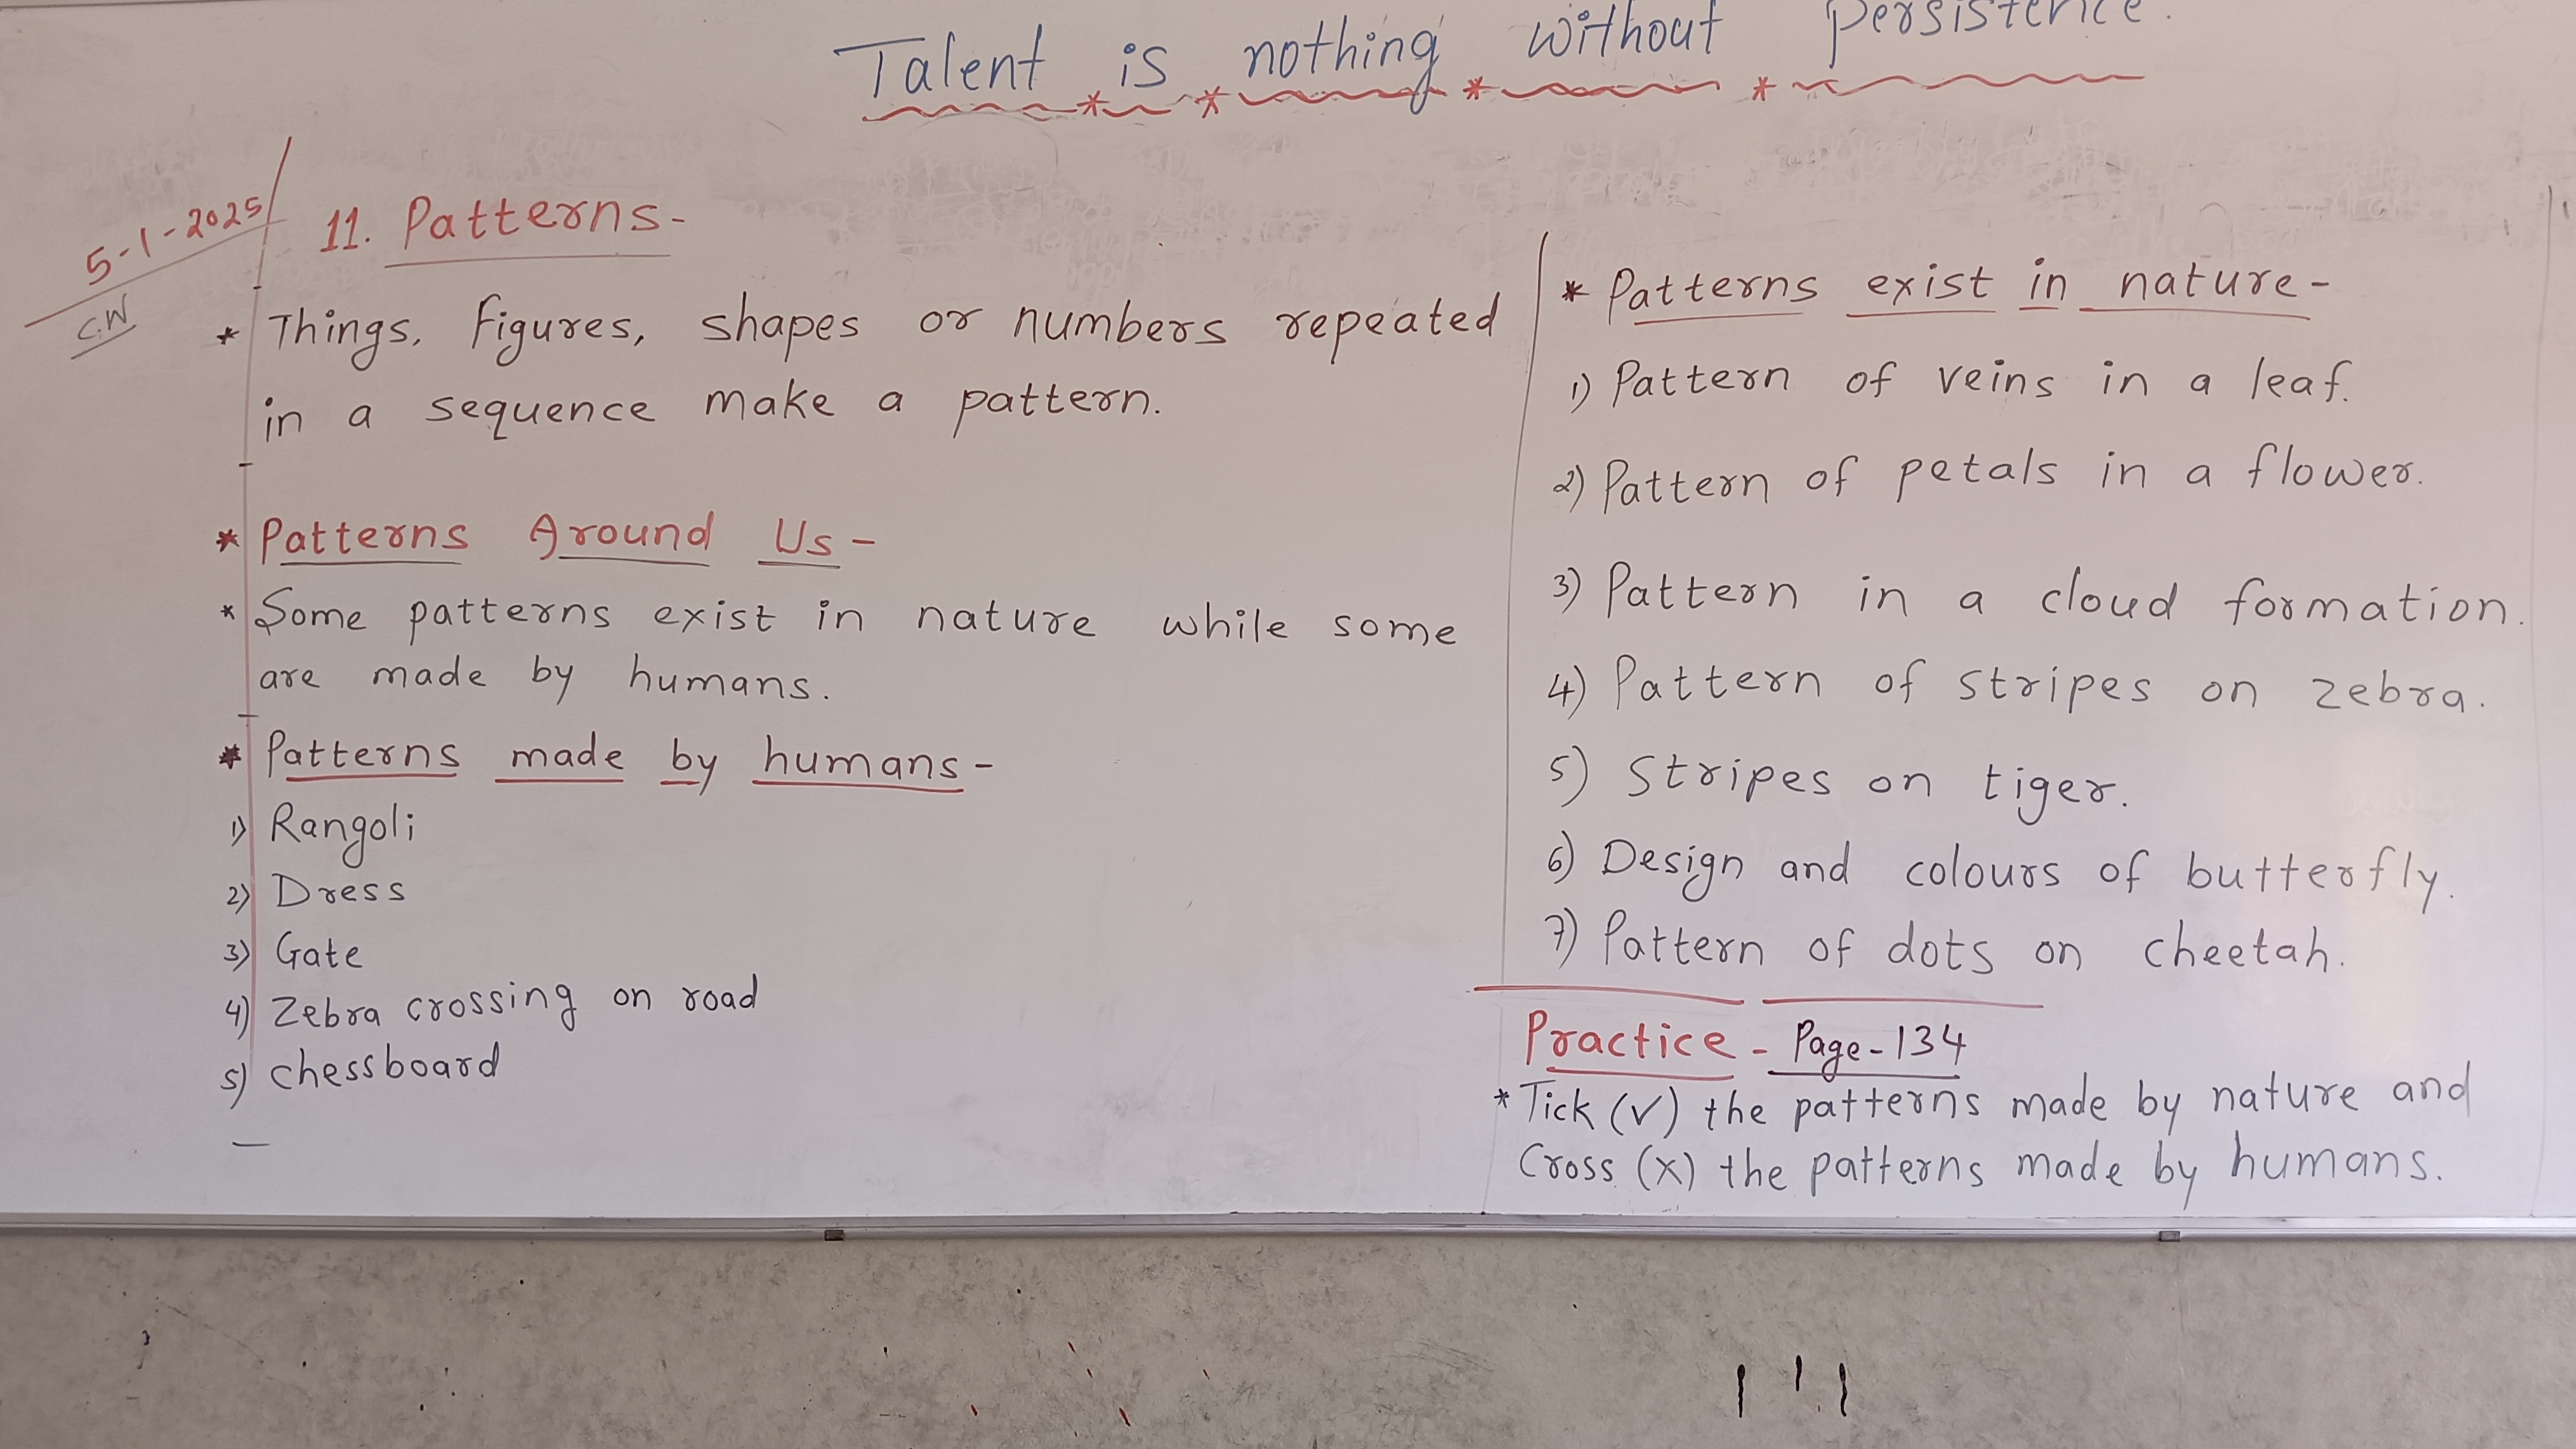 Talent is nothing without Persistence.
5-1-2025
C.W
11. Patterns-
* Things, figures, shapes or numbers repeated
in a sequence make a pattern.
* Patterns Around Us-
* Some patterns exist in nature while some
are made by humans.
* Patterns made by humans-
1) Rangoli
2) Dress
3) Gate
4) Zebra crossing on road
5) Chessboard
* Patterns exist in nature-
1) Pattern of veins in a leaf.
2) Pattern of petals in a flower.
3) Pattern in a cloud formation.
4) Pattern of stripes on zebra.
5) Stripes on tiger.
6) Design and colours of butterfly.
7) Pattern of dots on cheetah.
Practice - Page-134
* Tick (✓) the patterns made by nature and
Cross (x) the patterns made by humans.